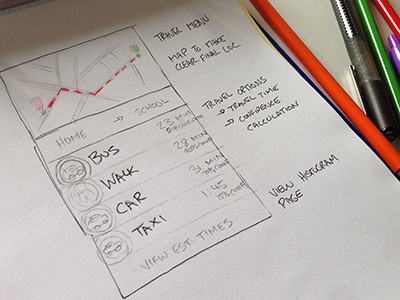 TRAVEL MENU
MAP TO MAKE
CLEAR FINAL LOC.
HOME → SCHOOL
TRAVEL OPTIONS
→ TRAVEL TIME
→ CONFIDENCE
CALCULATION
BUS 23 MIN
WALK 28 MIN
90% CONF
CAR 31 MIN
70% CONF
TAXI 1:45
15% CONF
VIEW EST. TIMES
VIEW HISTOGRAM
PAGE